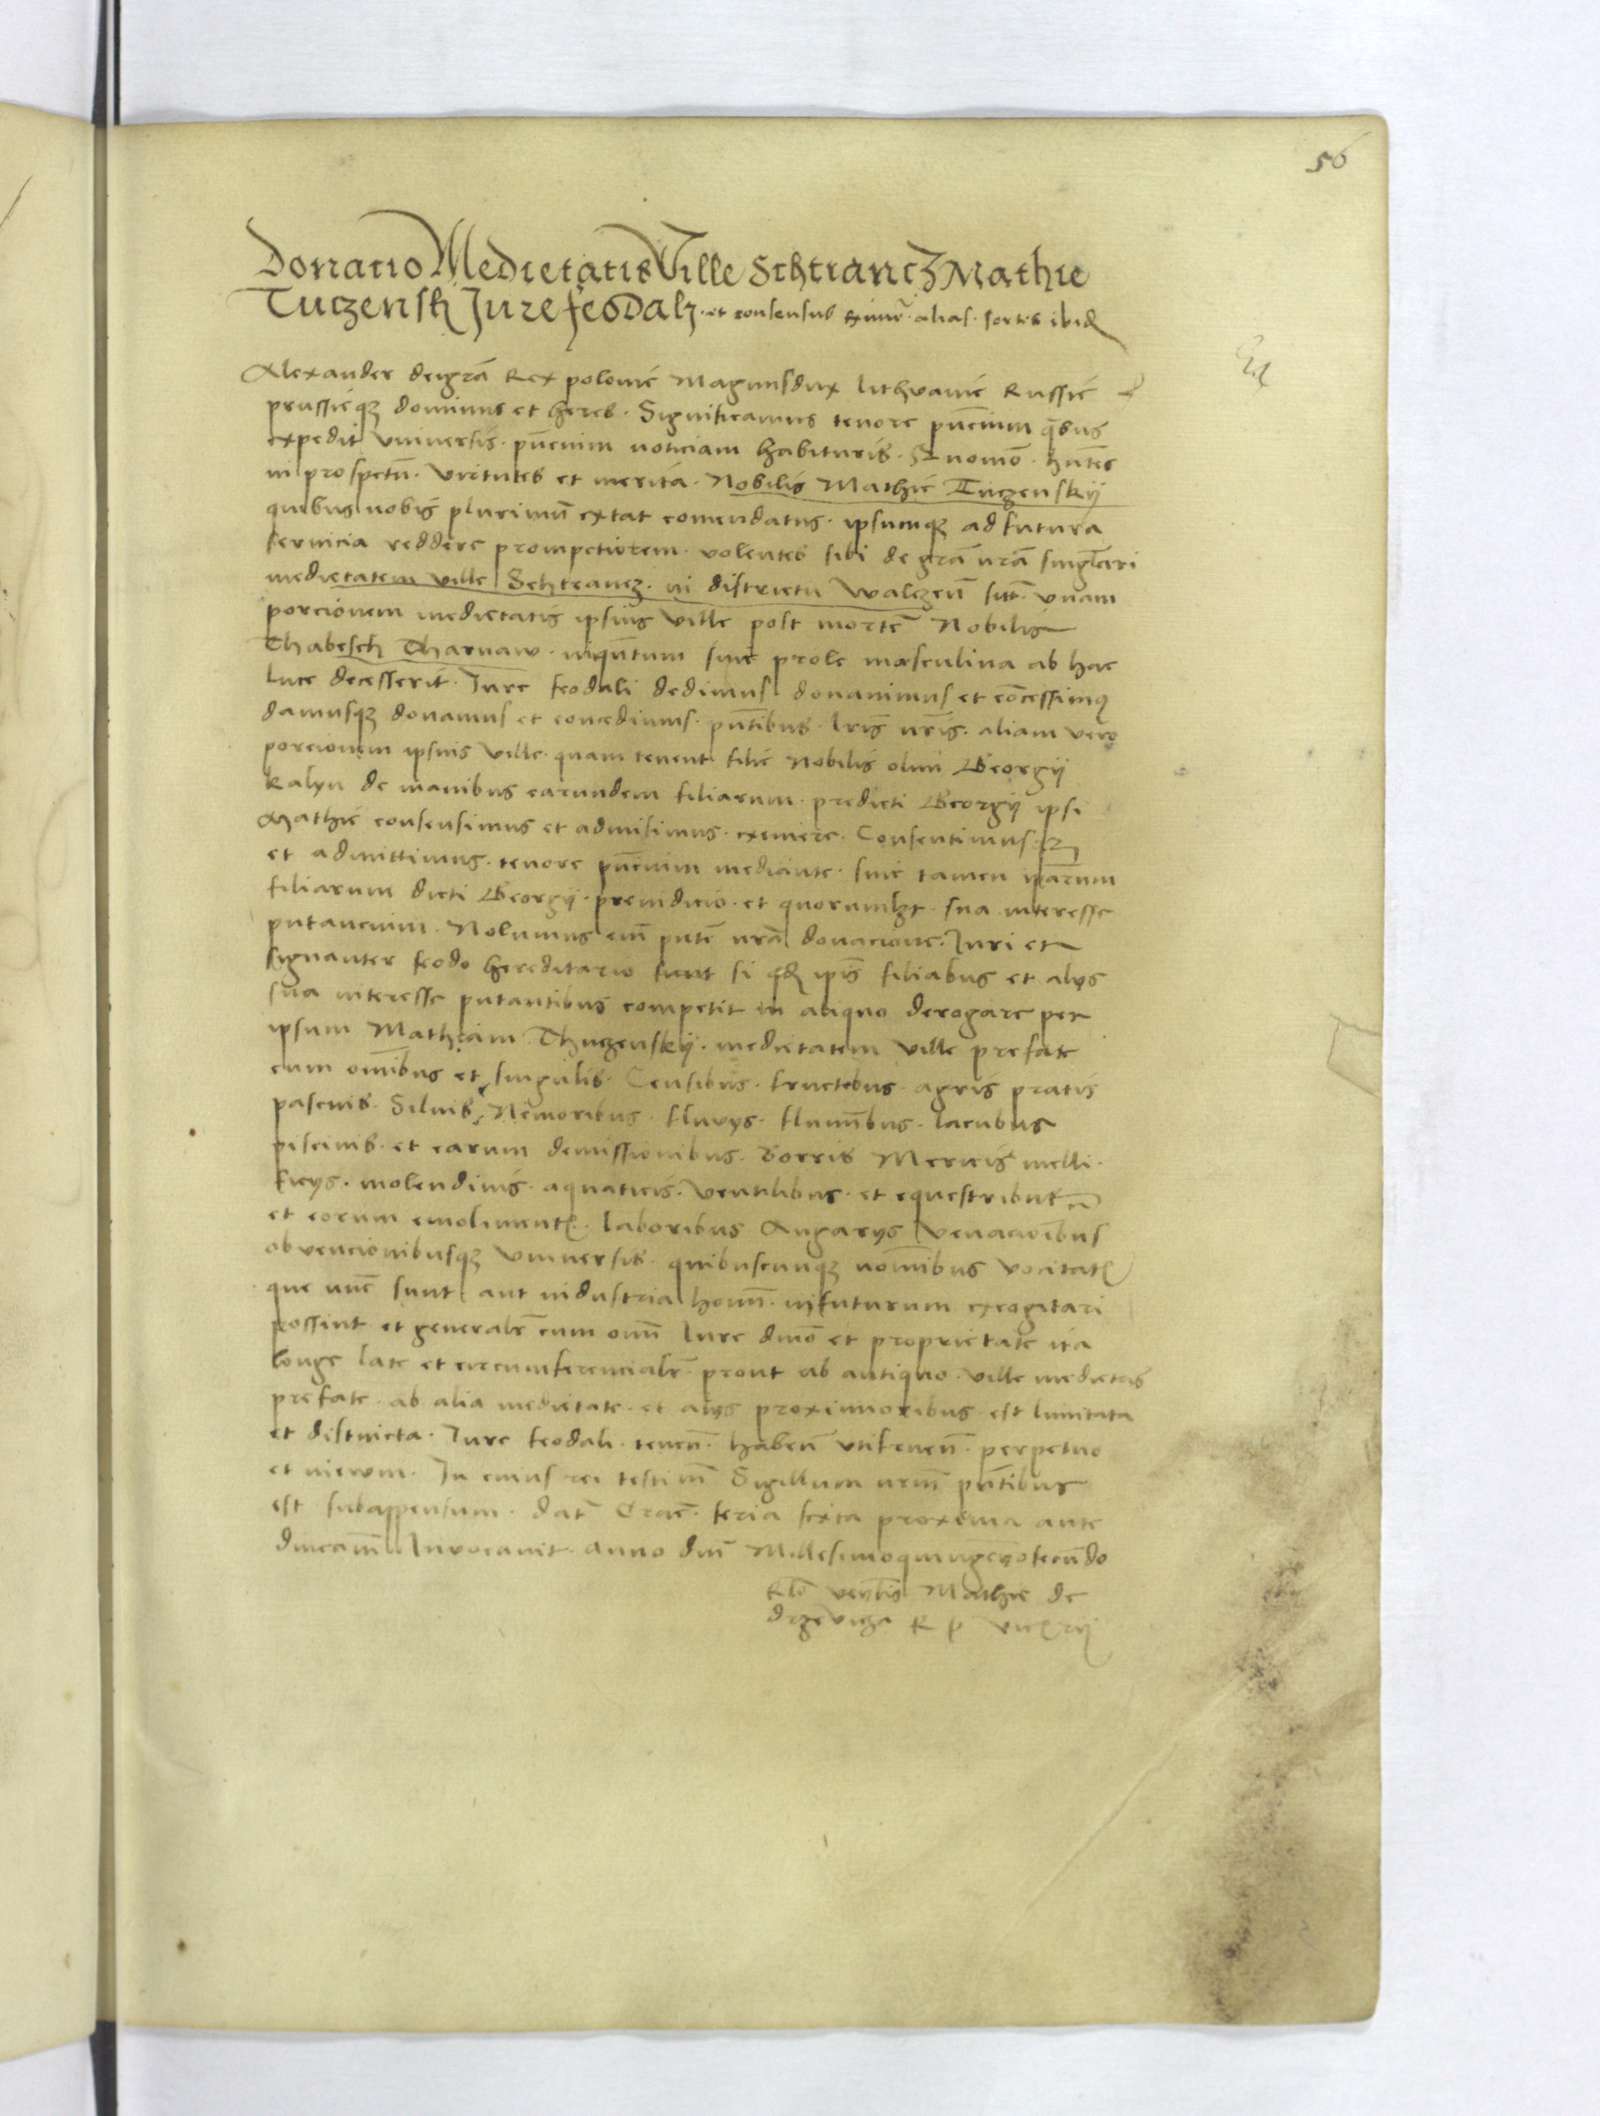 56
Donatio Medietatis Ville Schtrancz Mathie
Tuczensky Jure feodali · et consensus eximē · alias · sortis ibid
Alexander deigrā Rex polonie Magnusdux lithvanie Russie
prussieqz dominus et heres · Significamus tenore pn̄cium qbus
expedit vniversis · pn̄cium noticiam habituris · Qnomō · hn̄tes
in prospectū · virtutes et merita · Nobilis Mathie Tuczenskij
quibus nobis plurimū extat comendatus · ipsumqz ad futura
servicia reddere prompctiorem · volentes sibi de grā nrā singlari
medietatem ville Schtrancz · in districtu walczen̄ sitt̄ · vnam
porcionem medietatis ipsius ville post mortē Nobilis
Thabesch Tharnaw · inqn̄tum sine prole masculina ab hac
luce decesserit · Jure feodali dedimus donavimus et cōcessimus
damusqz donamus et concedimus · pn̄tibus · lrīs nrīs · aliam vero
porcionem ipsius ville · quam tenent filie Nobilis olim Georgij
Kalyn de manibus earundem filiarum · predicti Georgij ipsi
Mathie consensimus et admisimus · eximere · Consentimus ·
et admittimus · tenore pn̄cium mediante · sine tamen iparum
filiarum dicti Georgij · preiudicio · et quorumlzt · sua interesse
putancium · Nolumus em̄ pn̄te nrā donacione · Juri et
signanter feodo hereditario sunt si qd ip̄is filiabus et alys
sua interesse putantibus competit in aliquo derogare per
ipsum Mathiam Thuczenskij · medietatem ville prefate
cum om̄ibus et singulis · Censibus · fructibus · agris pratis
pascuis · Siluis · Nemoribus · fluvys · flumībus · lacubus
piscinis · et earum demissionibus · Borris Mericis melli ·
ficys · molendinis · aquaticis · ventilibus · et equestribus
et eorum emoliment · laboribus Angarys venacionibus
obvencionibusqz vniversis · quibuscunqz nom̄ibus vocitat
que nūc sunt aut industria homī · infuturum excogitari
possint et generalr̄ cum omī Jure dnīo et proprietate ita
longe late et circumferencialr̄ · prout ab antiquo · ville medietas
prefate · ab alia medietate · et alys proximioribus · est limitata
et distincta · Jure feodali · tenen̄ · haben̄ vtifruen̄ · perpetuo
et in ewm · In cuius rei testim̄ Sigillum nrm̄ pn̄tibus
est subappensum · dat̄ Crac̄ · feria sexta proxima ante
dn̄icam Invocavit · Anno dn̄i Millesimoquingen̄osecundo
Rlō venlis Mathie de
drzevicza R P viccrij